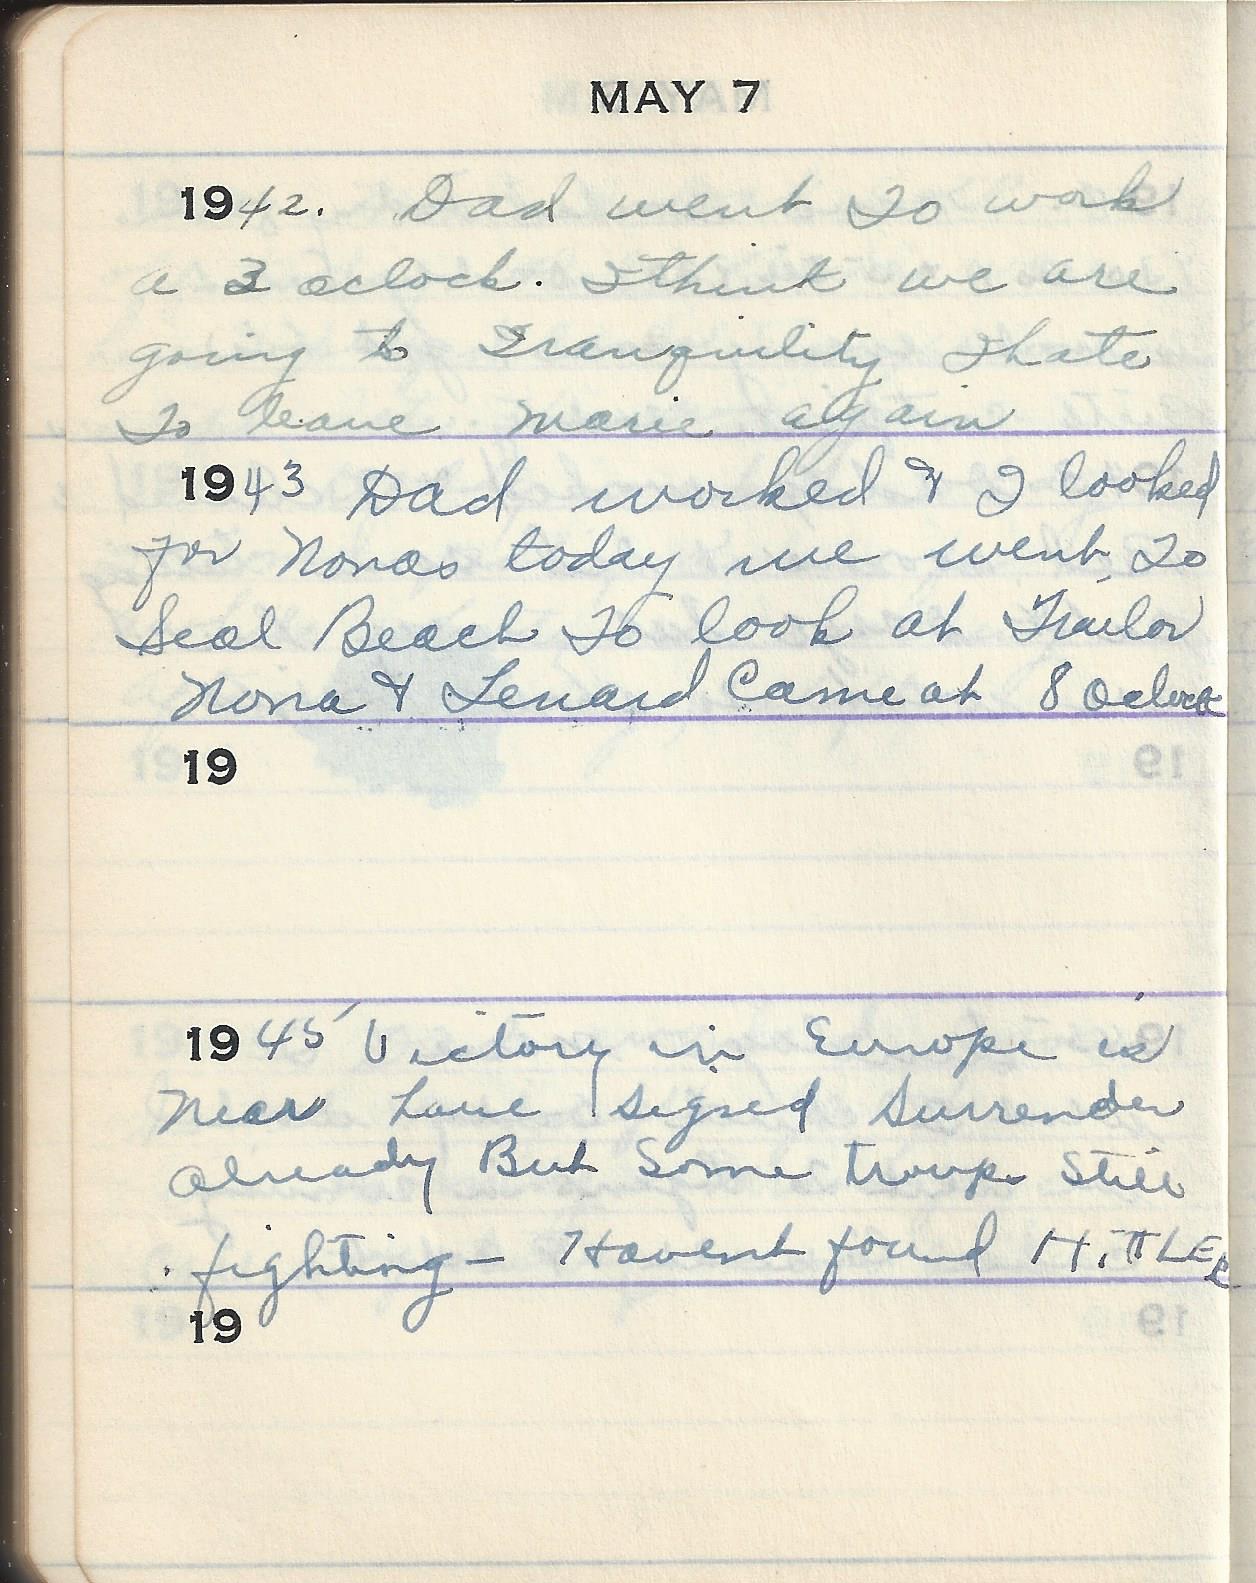 MAY 7
1942. Dad went to work
a 3 oclock. I think we are
going to Tranquility I hate
to leave Marie again
1943 Dad worked & I looked
for Nonas today we went to
Seal Beach to look at Trailor
Nona & Lenard Came at 8 Oclock
19
1945 Victory in Europe is
Near have signed surrender
already But Some troups Still
fighting - Havent found HITTLER
19